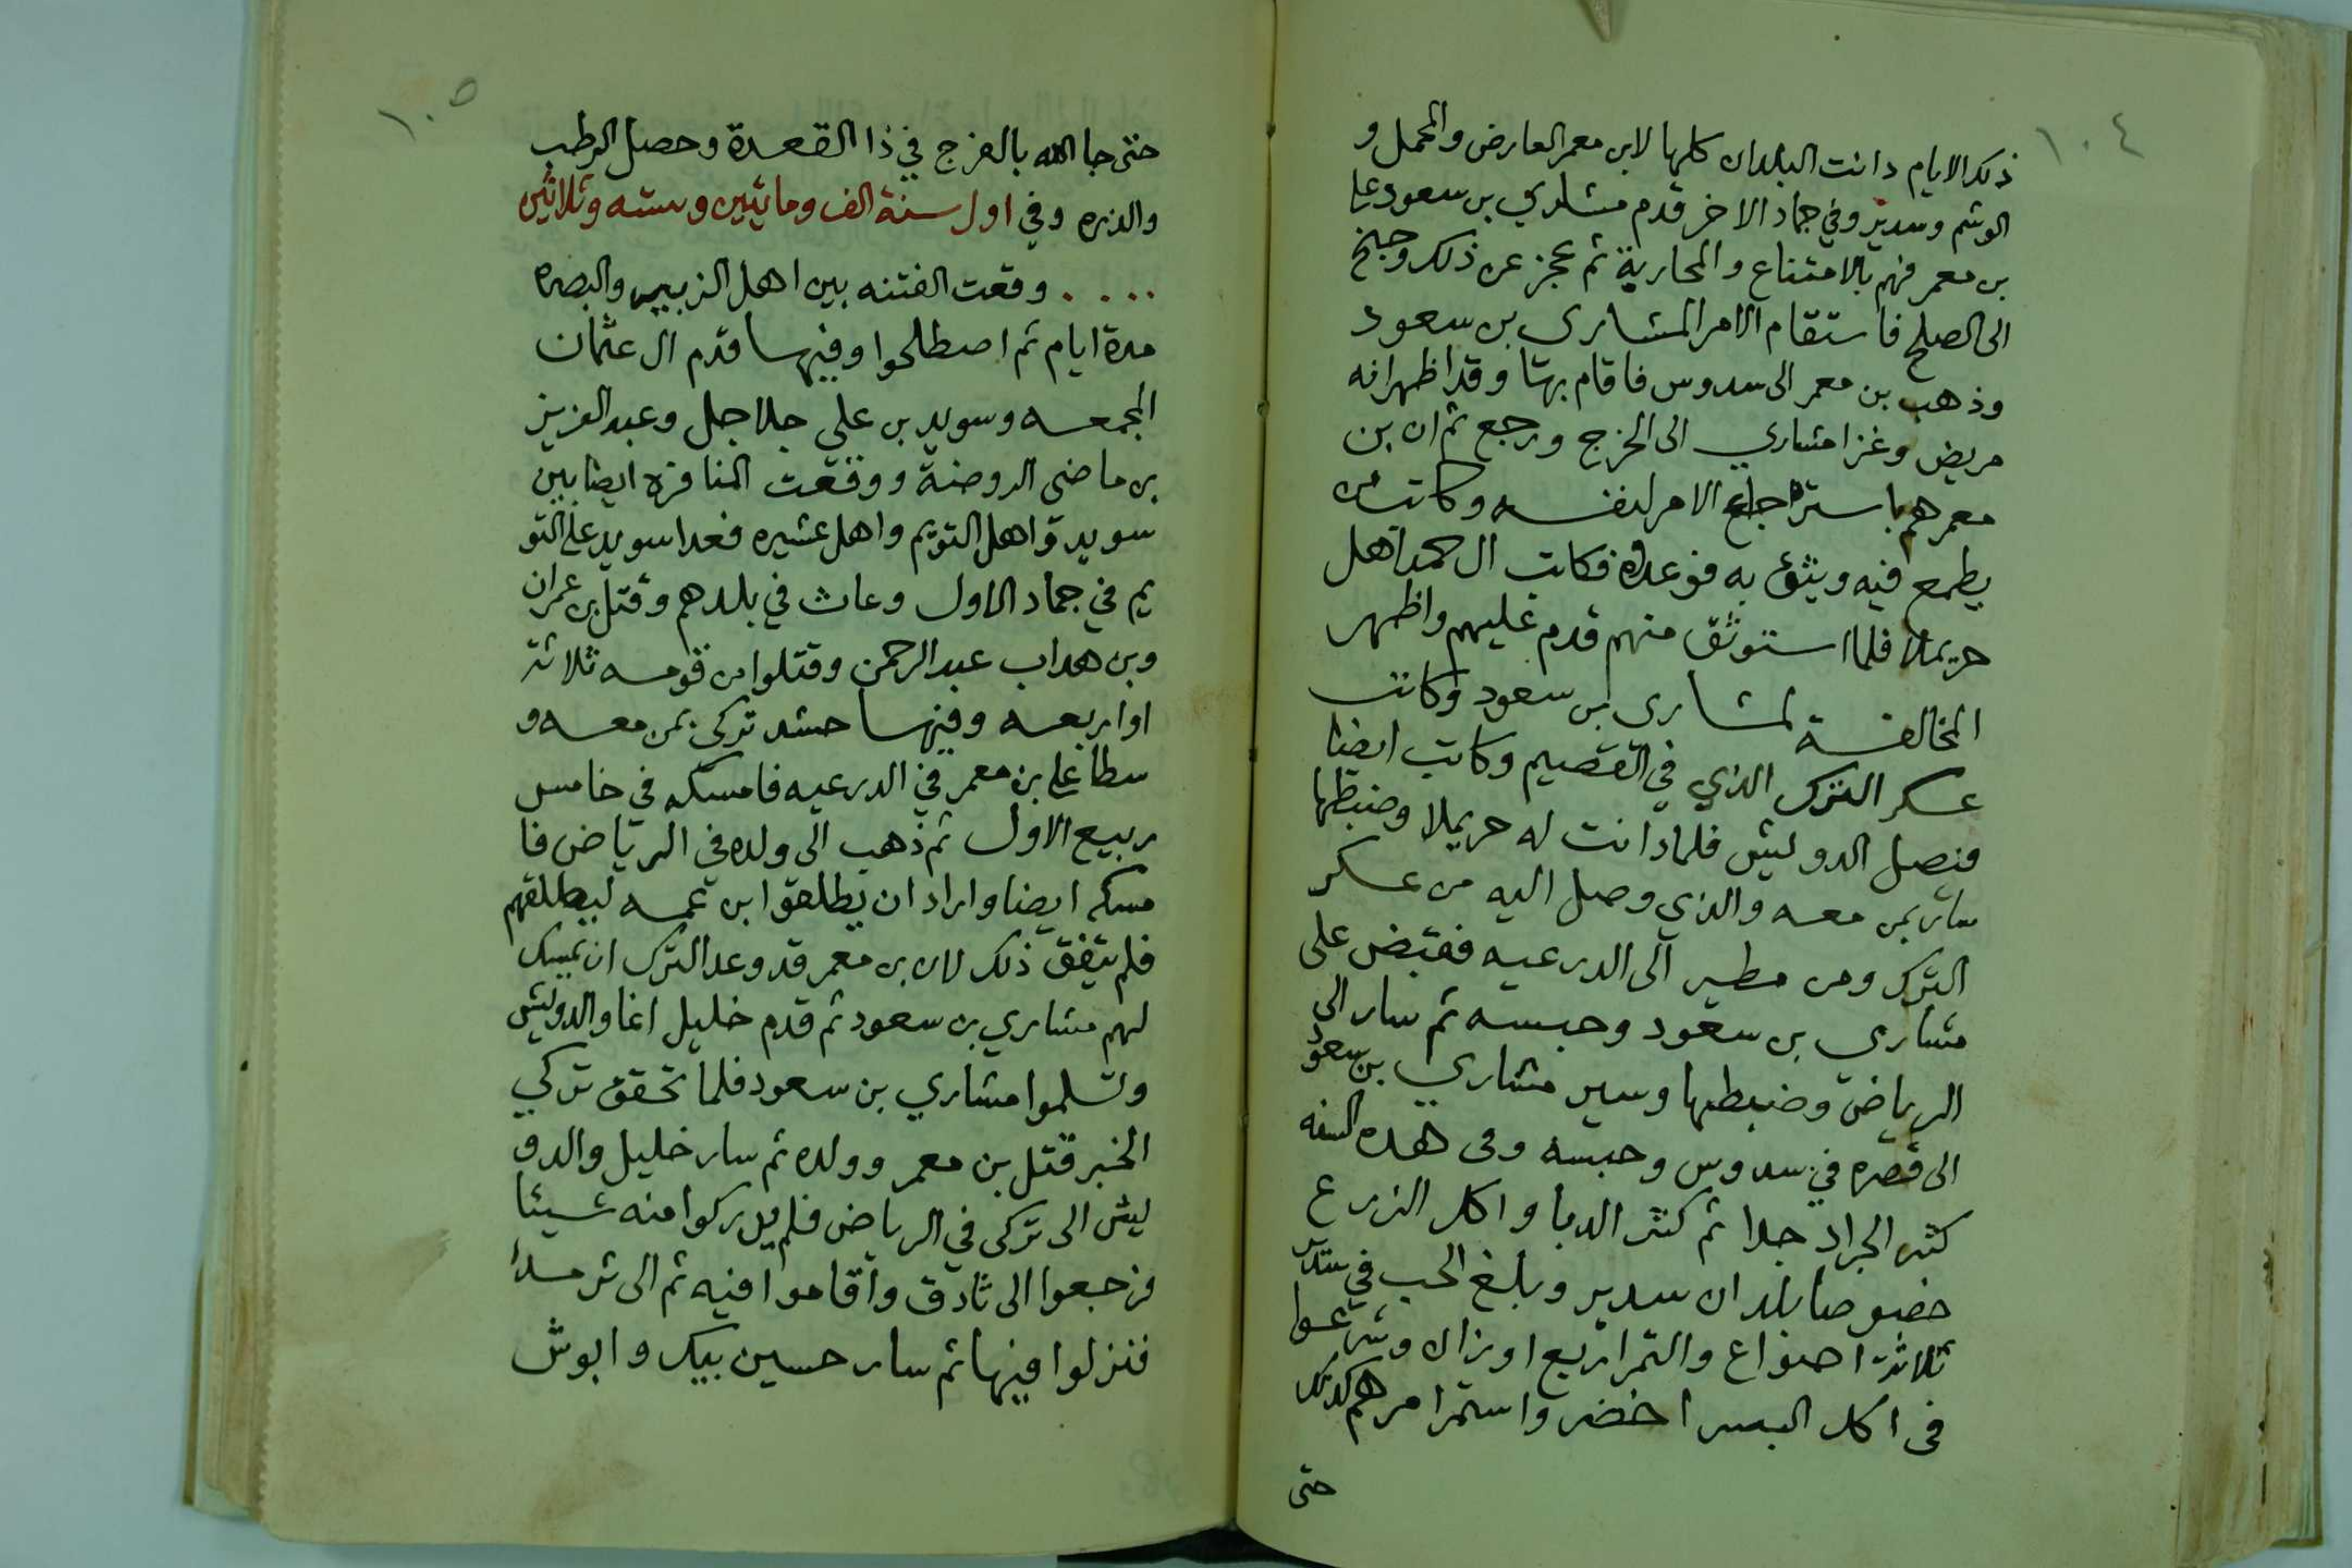 ١٠٤
ذلك الايام دانت البلدان كلها لابن معمر العارض والمحمل و
الوشم وسدير وفي جماد الاخر قدم مشاري بن سعود على
بن معمر فهم بالامتناع والمحاربة ثم عجز عن ذلك وجنح
الى الصلح فاستقام الامر لمشارى بن سعود
وذهب بن معمر الى سدوس فاقام بهتا وقد اظهر انه
مريض وغزا مشاري الى الخرج ورجع ثم ان بن
معمر هم باسترجاع الامر لنفسه وكاتب من
يطمع فيه ويثق به فوعدوه فكاتب ال حمد اهل
حريملا فلما استوثق منهم قدم عليهم واظهر
المخالفة لمشارى بن سعود وكاتب
عسكر الترك الذي في القصيم وكاتب ايضا
فيصل الدويش فلما دانت له حريملا وضبطها
سار بمن معه والذي وصل اليه من عسكر
الترك ومن مطير الى الدرعيه فقبض على
مشاري بن سعود وحبسه ثم سار الى
الرياض وضبطها وسير مشاري بن سعود
الى قصره في سدوس وحبسه وفى هذه السنه
كثر الجراد جدا ثم كثر الدبا واكل الزرع
خصوصا بلدان سدير وبلغ الحب في سدير
ثلاثة اصواع والتمر اربع اوزان وشرعوا
فى اكل البسر اخضر واستمر امرهم كذلك
حتى
١٠٥
حتى جا الله بالفرج في ذا القعدة وحصل الرطب
والذره وفي اول سنة الف ومائتين وسته وثلاثين
.... وقعت الفتنه بين اهل الزبير والبصره
مدة ايام ثم اصطلحوا وفيها قدم ال عثمان
المجمعه وسويد بن علي جلاجل وعبد العزيز
بن ماضى الروضة ووقعت المنافره ايضا بين
سويد واهل التويم واهل عشيره فعدا سويد على التو
يم في جماد الاول وعاث في بلدهم وقتل بن عمران
وبن هداب عبد الرحمن وقتلوا من قومه ثلاثة
او اربعه وفيها حشد تركي بمن معه و
سطا على بن معمر في الدرعيه فامسكه في خامس
ربيع الاول ثم ذهب الى ولده في الرياض فا
مسكه ايضا واراد ان يطلقوا ابن عمه ليطلقهم
فلم يتفق ذلك لان بن معمر قد وعد الترك ان يمسك
لهم مشاري بن سعود ثم قدم خليل اغا والدويش
وتسلموا مشاري بن سعود فلما تحقق تركي
الخبر قتل بن معمر وولده ثم سار خليل والدو
ليش الى تركى في الرياض فلم يدركوا منه شيئا
فرجعوا الى ثادق واقاموا فيه ثم الى ثرمدا
فنزلوا فيها ثم سار حسين بيك وابوش